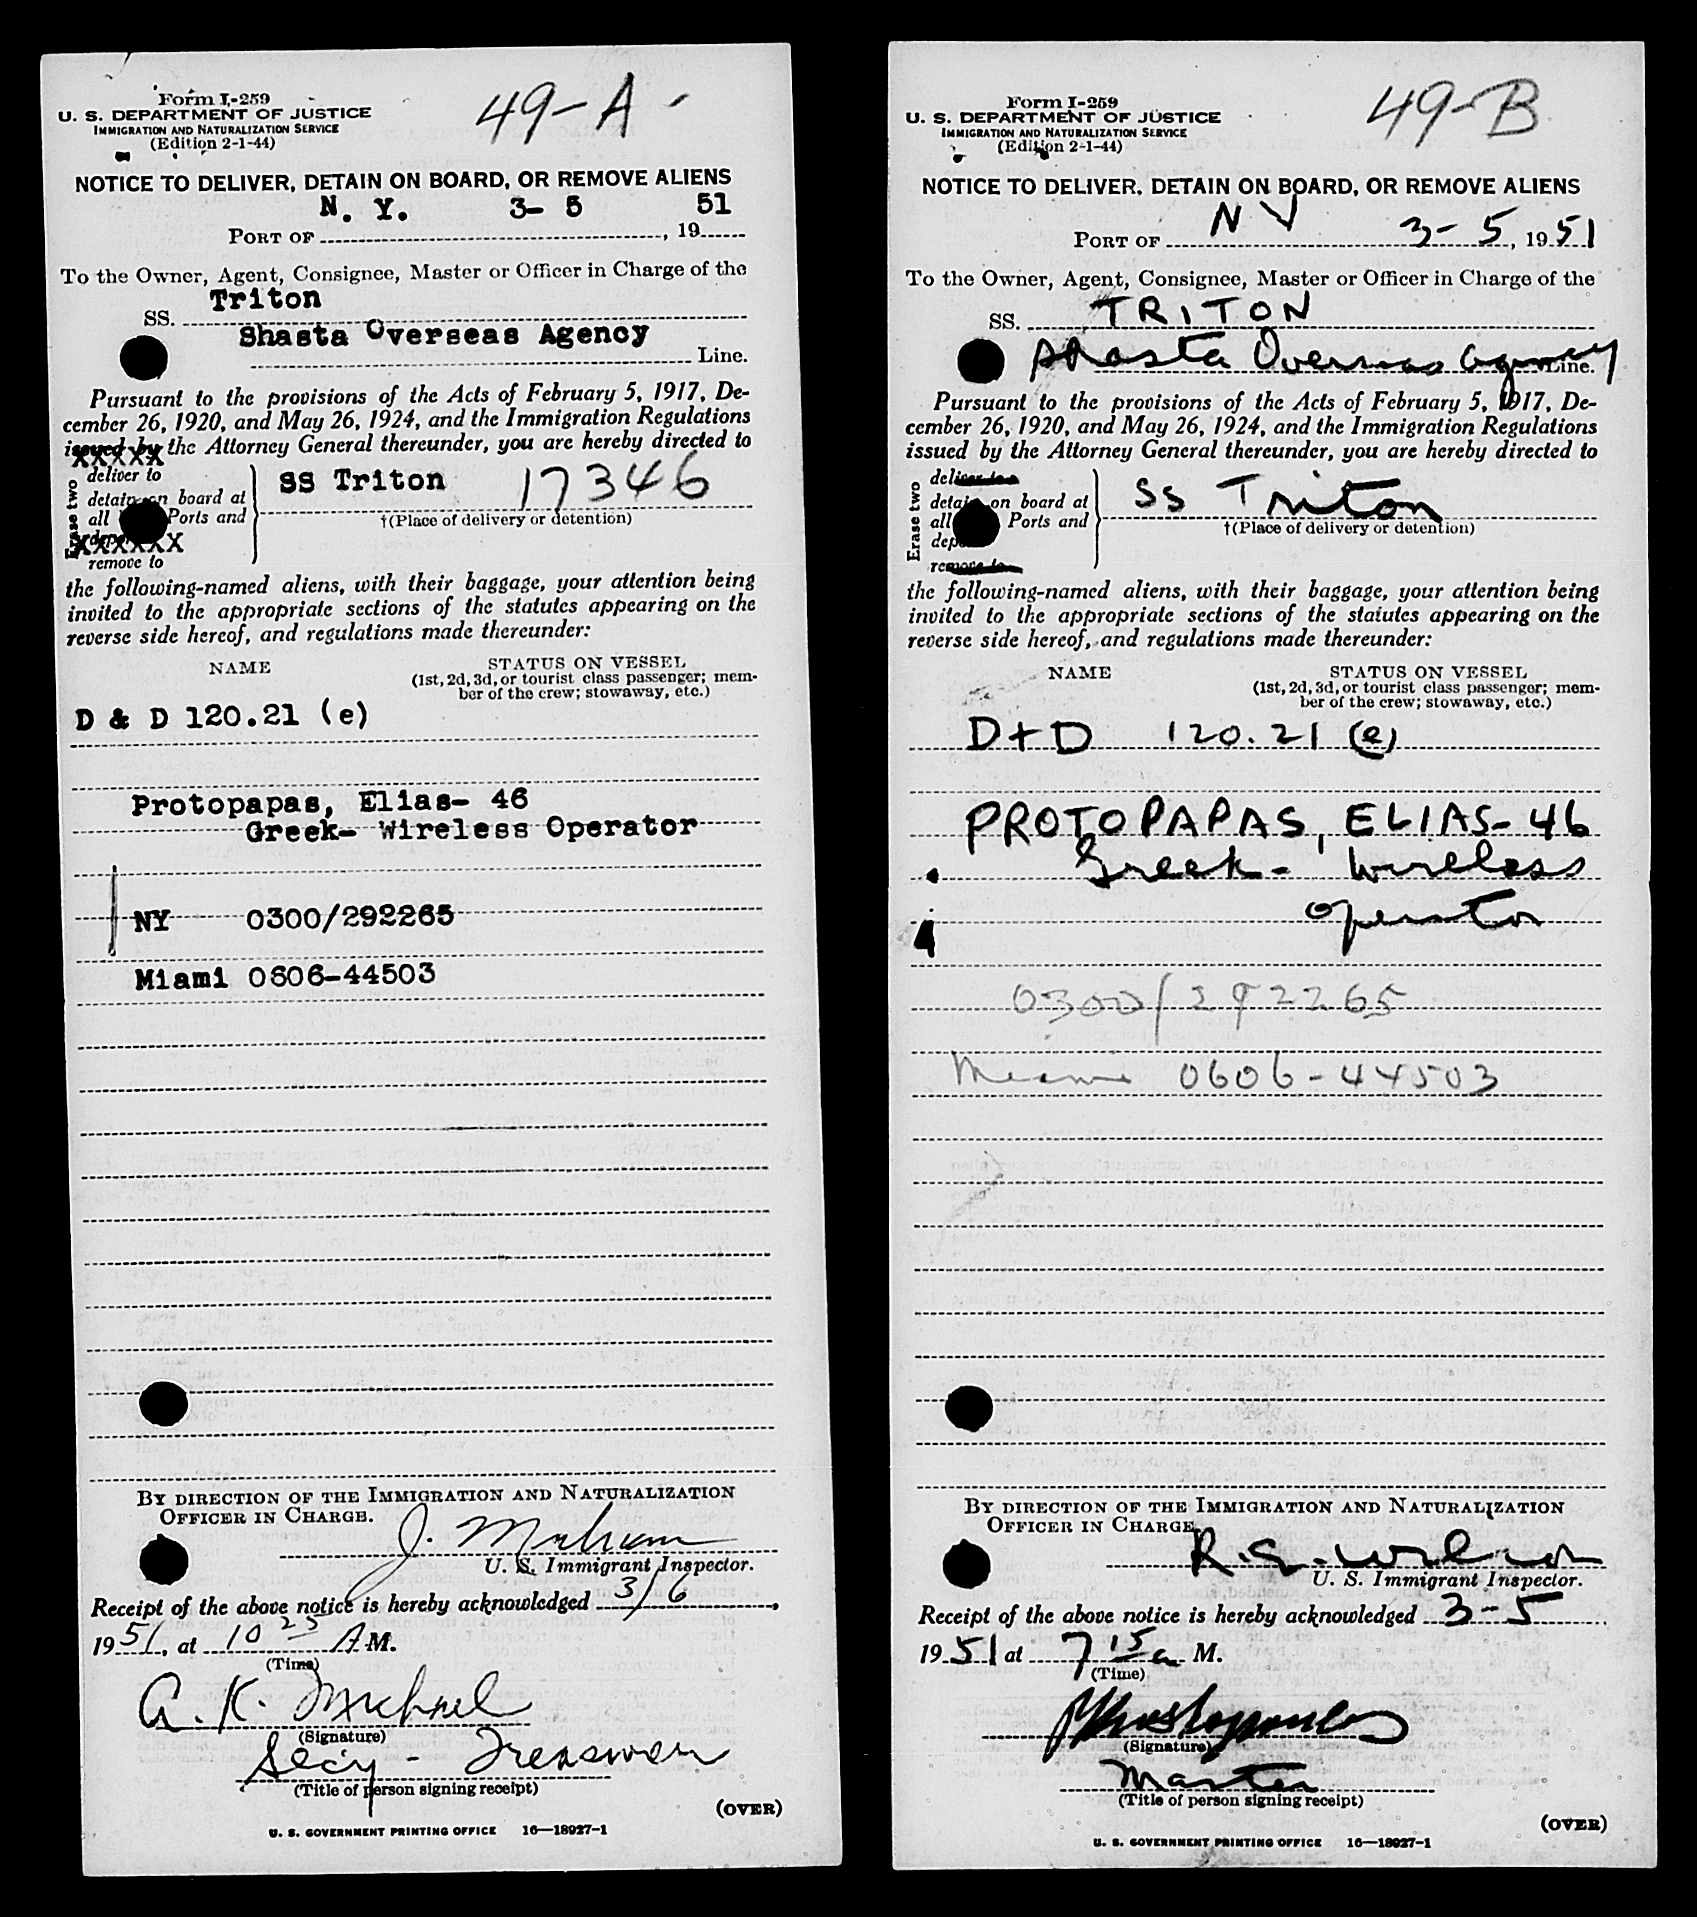 Form I-259
U. S. DEPARTMENT OF JUSTICE
IMMIGRATION AND NATURALIZATION SERVICE
(Edition 2-1-44)
49-A-
NOTICE TO DELIVER, DETAIN ON BOARD, OR REMOVE ALIENS
N. Y. 3- 5 51
PORT OF , 19
To the Owner, Agent, Consignee, Master or Officer in Charge of the
Triton
SS.
Shasta Overseas Agency
Line.
Pursuant to the provisions of the Acts of February 5, 1917, De-
cember 26, 1920, and May 26, 1924, and the Immigration Regulations
issued by the Attorney General thereunder, you are hereby directed to
XXXXX
Erase two
deliver to
detain on board at
all Ports and
XXXXXX
remove to
SS Triton 17346
†(Place of delivery or detention)
the following-named aliens, with their baggage, your attention being
invited to the appropriate sections of the statutes appearing on the
reverse side hereof, and regulations made thereunder:
NAME
STATUS ON VESSEL
(1st, 2d, 3d, or tourist class passenger; mem-
ber of the crew; stowaway, etc.)
D & D 120.21 (e)
Protopapas, Elias- 46
Greek- Wireless Operator
NY 0300/292265
Miami 0606-44503
BY DIRECTION OF THE IMMIGRATION AND NATURALIZATION
OFFICER IN CHARGE.
J.
U. S. Immigrant Inspector.
Receipt of the above notice is hereby acknowledged 3/6,
1951, at 10 25 A M.
(Time)
A. K. Michael
(Signature)
Secy - Treasurer
(Title of person signing receipt)
(OVER)
U. S. GOVERNMENT PRINTING OFFICE 16—18927-1
Form I-259
U. S. DEPARTMENT OF JUSTICE
IMMIGRATION AND NATURALIZATION SERVICE
(Edition 2-1-44)
49-B
NOTICE TO DELIVER, DETAIN ON BOARD, OR REMOVE ALIENS
PORT OF N Y 3-5, 1951
To the Owner, Agent, Consignee, Master or Officer in Charge of the
SS. TRITON
Shasta Overseas Agency Line.
Pursuant to the provisions of the Acts of February 5, 1917, De-
cember 26, 1920, and May 26, 1924, and the Immigration Regulations
issued by the Attorney General thereunder, you are hereby directed to
Erase two
deliver to
detain on board at
all Ports and
remove to
SS Triton
†(Place of delivery or detention)
the following-named aliens, with their baggage, your attention being
invited to the appropriate sections of the statutes appearing on the
reverse side hereof, and regulations made thereunder:
NAME
STATUS ON VESSEL
(1st, 2d, 3d, or tourist class passenger; mem-
ber of the crew; stowaway, etc.)
D+D 120.21 (e)
PROTOPAPAS, ELIAS-46
Greek- Wireless
operator
0300/292265
Miami 0606-44503
BY DIRECTION OF THE IMMIGRATION AND NATURALIZATION
OFFICER IN CHARGE.
R.G. Wilson
U. S. Immigrant Inspector.
Receipt of the above notice is hereby acknowledged 3-5
1951 at 7 15 a M.
(Time)
(Signature)
Master
(Title of person signing receipt)
(OVER)
U. S. GOVERNMENT PRINTING OFFICE 16—18927-1